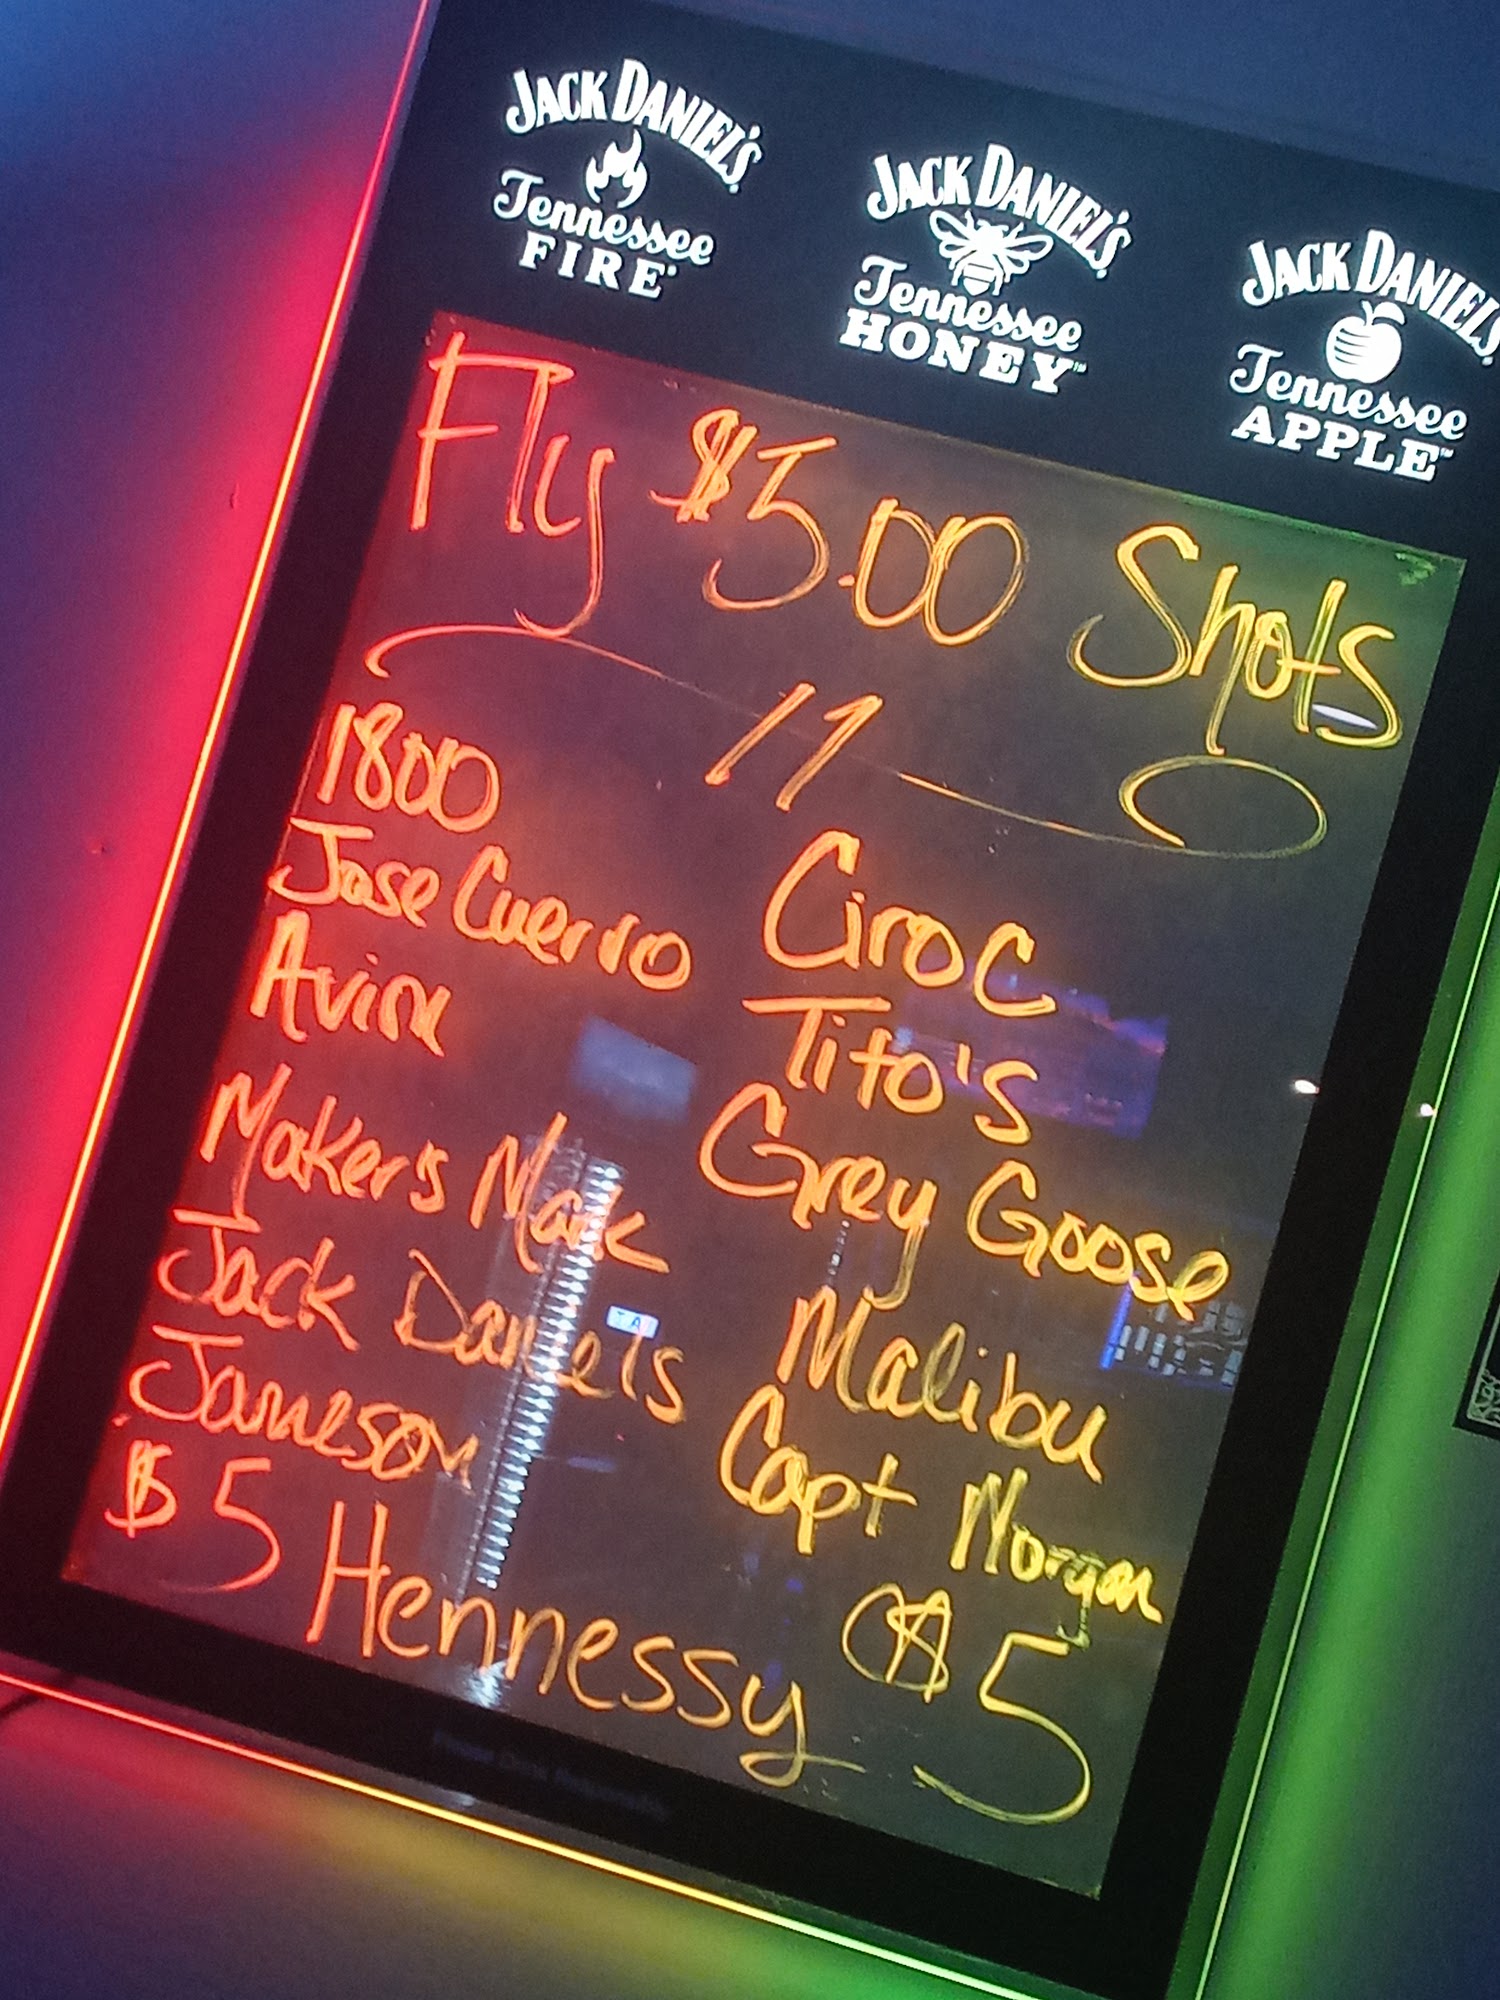 JACK DANIEL'S
Tennessee
FIRE
JACK DANIEL'S
Tennessee
HONEY™
JACK DANIEL'S
Tennessee
APPLE
Fly $5.00 Shots
1800
Jose Cuervo
Avion
Maker's Mark
Jack Daniels
Jameson
Ciroc
Tito's
Grey Goose
Malibu
Capt Morgan
$5 Hennessy $5